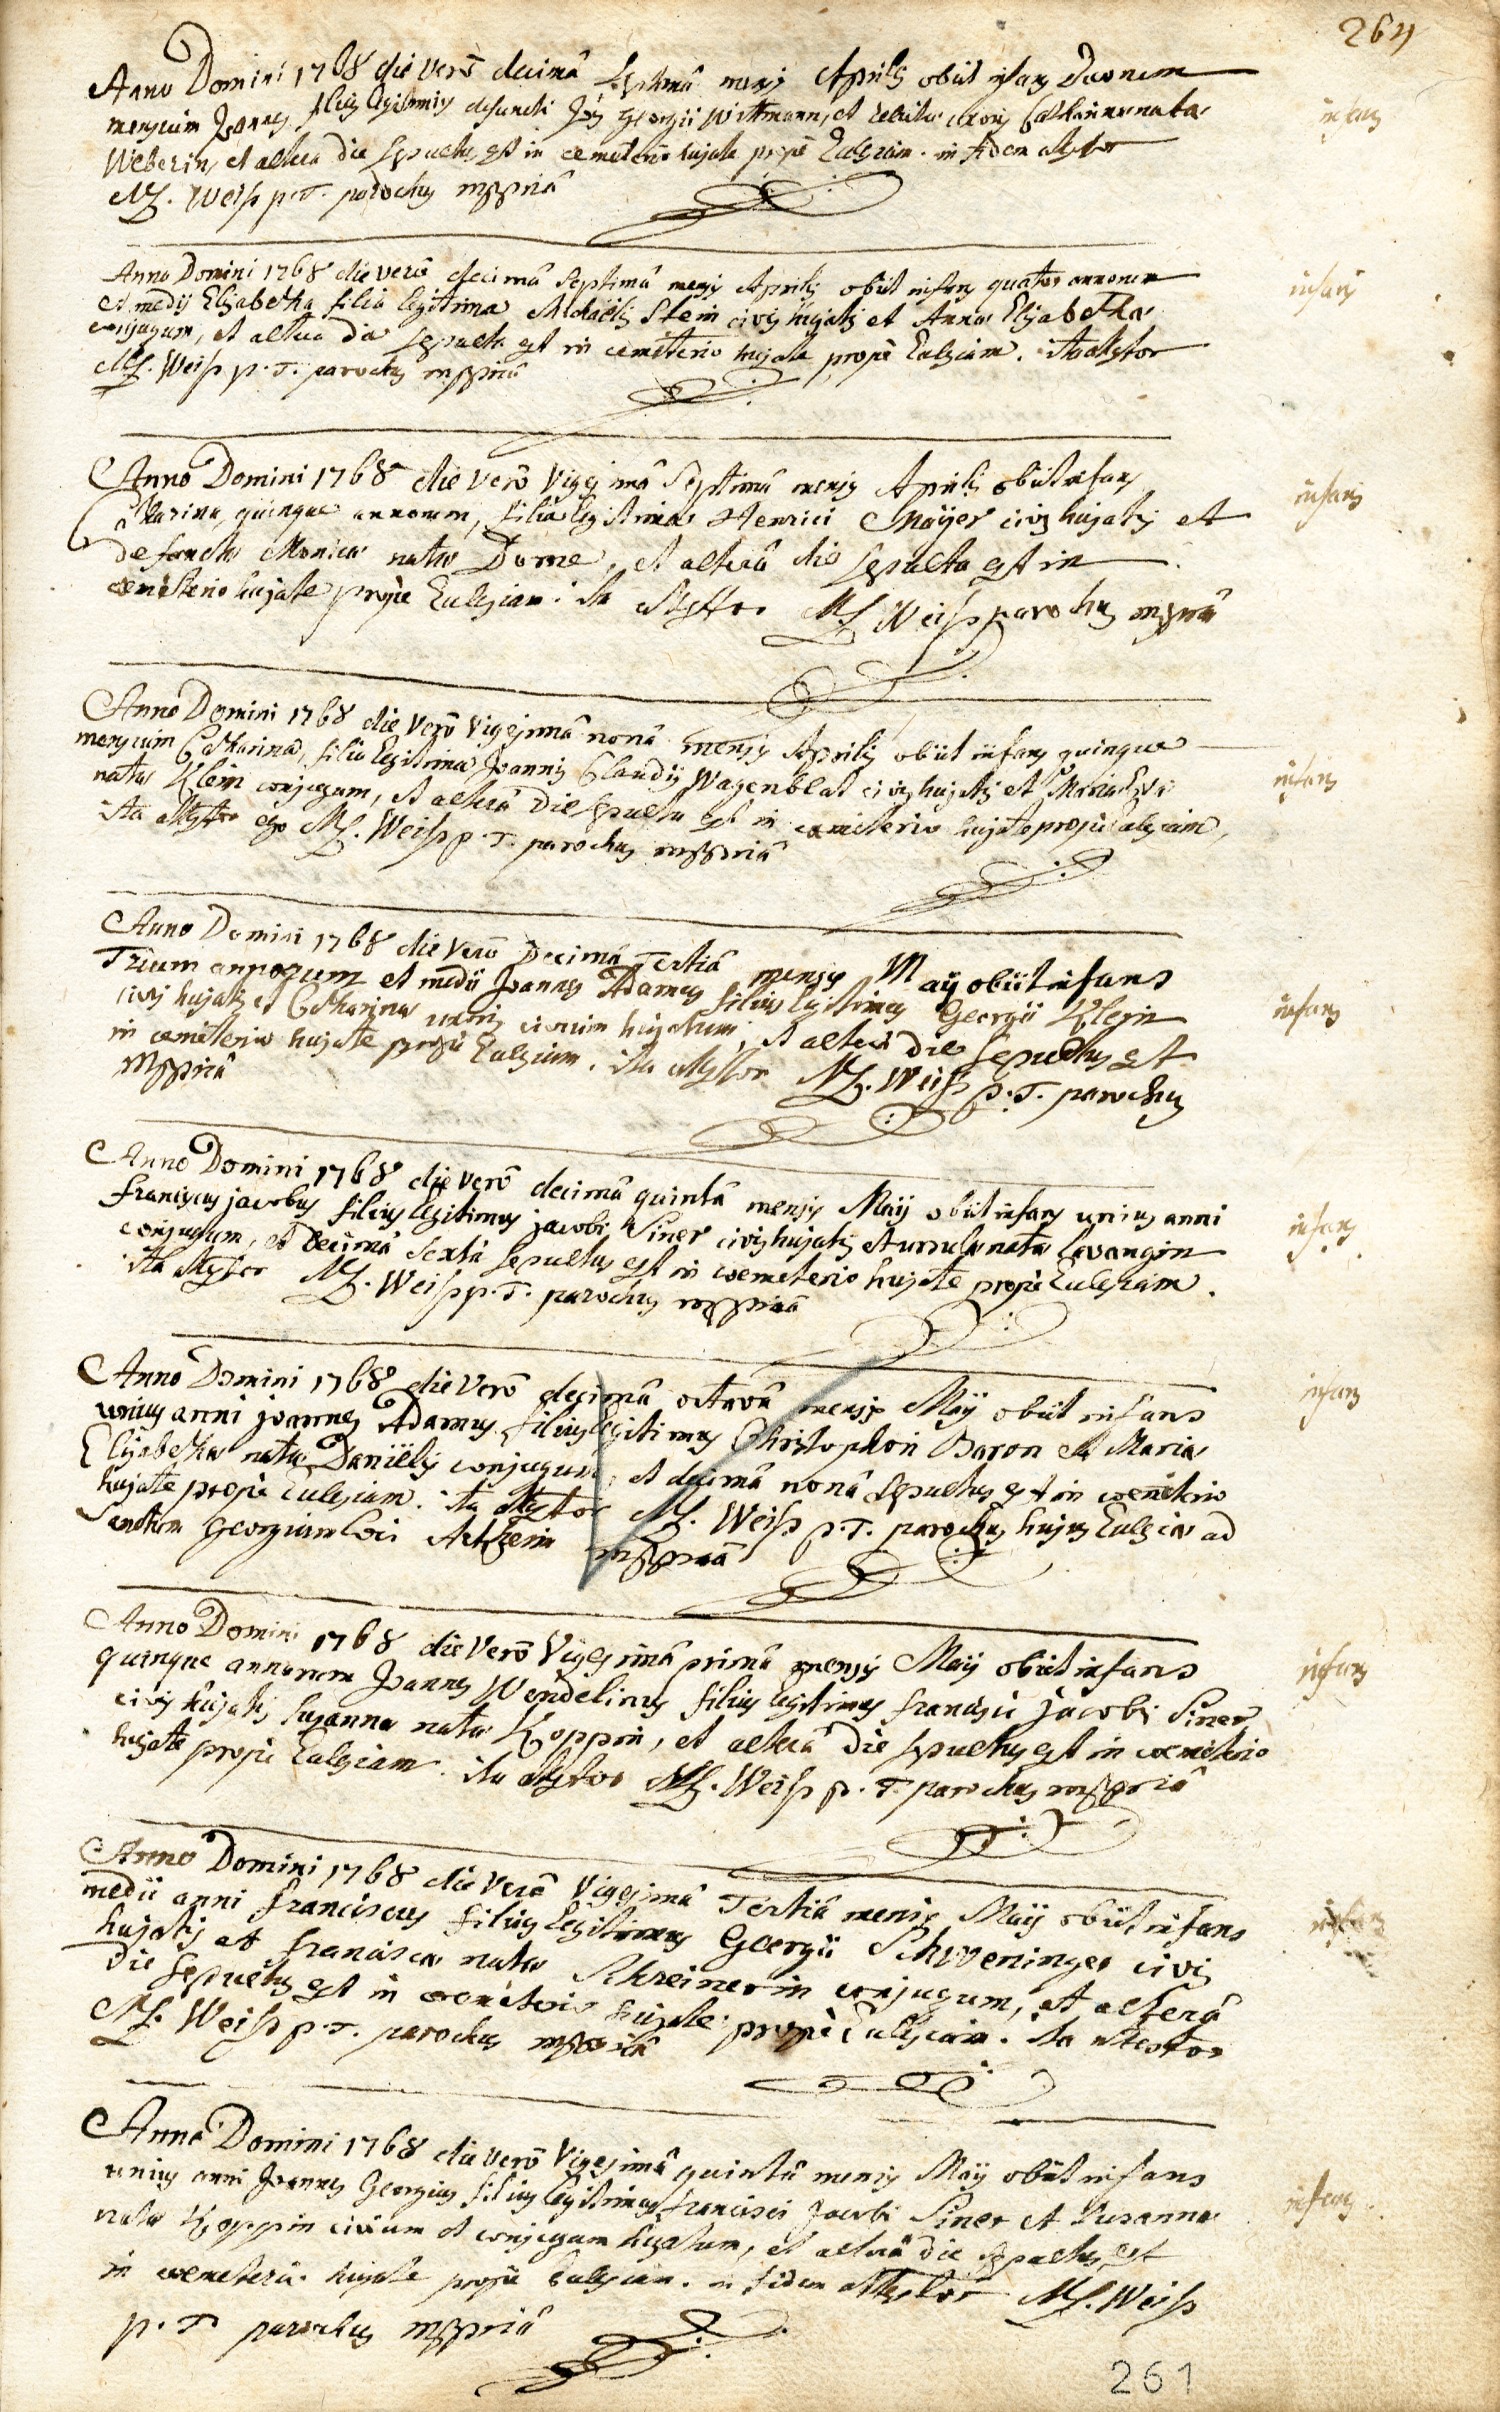 264
Anno Domini 1768 die verò decimâ septimâ mensis Aprilis obiit infans duorum
mensium Joannes filius legitimus defuncti Jois Georgii Wittmann, et relictae uxoris Catharinae natae
Weberin, et altera die sepultus est in cemeterio hujate propè Ecclesiam. in fidem attestor
M. Weiss p.T. parochus mppriâ
infans
Anno Domini 1768 die verò decimâ septimâ mensis Aprilis obiit infans quatuor annorum
et medij Elisabetha filia legitima Michaëlis Stein civis hujatis et Annae Elisabethae
conjugum, et altera die sepulta est in cemeterio hujate propè Ecclesiam. ita attestor
M. Weiss p.T. parochus mppriâ
infans
Anno Domini 1768 die verò vigesimâ septimâ mensis Aprilis obiit infans
Catharina, quinque annorum, filia legitima Henrici Mayer civis hujatis et
defunctae Monicae natae Dorne, et alterâ die sepulta est in
cemeterio hujate propè Ecclesiam. ita attestor M. Weiss parochus mppriâ
infans
Anno Domini 1768 die verò vigesimâ nonâ mensis Aprilis obiit infans quinque
mensium Catharina, filia legitima Joannis Claudij Wagenblat civis hujatis et
natae Klein conjugum, et alterâ die sepulta est in cemeterio hujate propè Ecclesiam,
ita attestor ego M. Weiss p.T. parochus mppriâ
infans
Anno Domini 1768 die verò Decimâ Tertiâ mensis Maij obiit infans
Trium annorum et medii Joannes Adamus filius legitimus Georgii Klein
civis hujatis et Catharinae uxoris civium hujatum, et alterâ die sepultus est
in cemeterio hujate propè Ecclesiam. ita attestor M. Weiss p.T. parochus
mppriâ
infans
Anno Domini 1768 die verò decimâ quintâ mensis Maij obiit infans unius anni
franciscus jacobus filius legitimus jacobi Siner civis hujatis et ursulae natae Lavangin
conjugum, et decimâ sextâ sepultus est in coemeterio hujate propè Ecclesiam.
ita attestor M. Weiss p.T. parochus mppriâ
infans
Anno Domini 1768 die verò decimâ octavâ mensis Maij obiit infans
unius anni joannes Adamus filius legitimus Christophori Baron et Maria
Elisabetha natae Daniëlis conjugum, et decimâ nonâ sepultus est in coemeterio
hujate propè Ecclesiam. ita attestor M. Weiss p.T. parochus hujus Ecclesiae ad
Sanctum Georgium loci mppriâ
infans
Anno Domini 1768 die verò Vigesimâ primâ mensis Maij obiit infans
quinque annorum Joannes Wendelinus filius legitimus francisci jacobi Siner
civis hujatis Susannae natae Koppin, et alterâ die sepultus est in coemeterio
hujate propè Ecclesiam. ita attestor M. Weiss p.T. parochus mppriâ
infans
Anno Domini 1768 die verò Vigesimâ Tertiâ mensis Maij obiit infans
medii anni franciscus filius legitimus Georgii Schweninger civis
hujatis et franciscae natae Schreinerin conjugum, et alterâ
die sepultus est in coemeterio hujate propè Ecclesiam. ita attestor
M. Weiss p.T. parochus mppriâ
infans
Anno Domini 1768 die verò Vigesimâ quintâ mensis Maij obiit infans
unius anni Joannes Georgius filius legitimus francisci Jacobi Siner et Susannae
natae Koppin civium et conjugum hujatum, et alterâ die sepultus est
in coemeterio hujate propè Ecclesiam. in fidem attestor M. Weiss
p.T. parochus mppriâ
infans
261